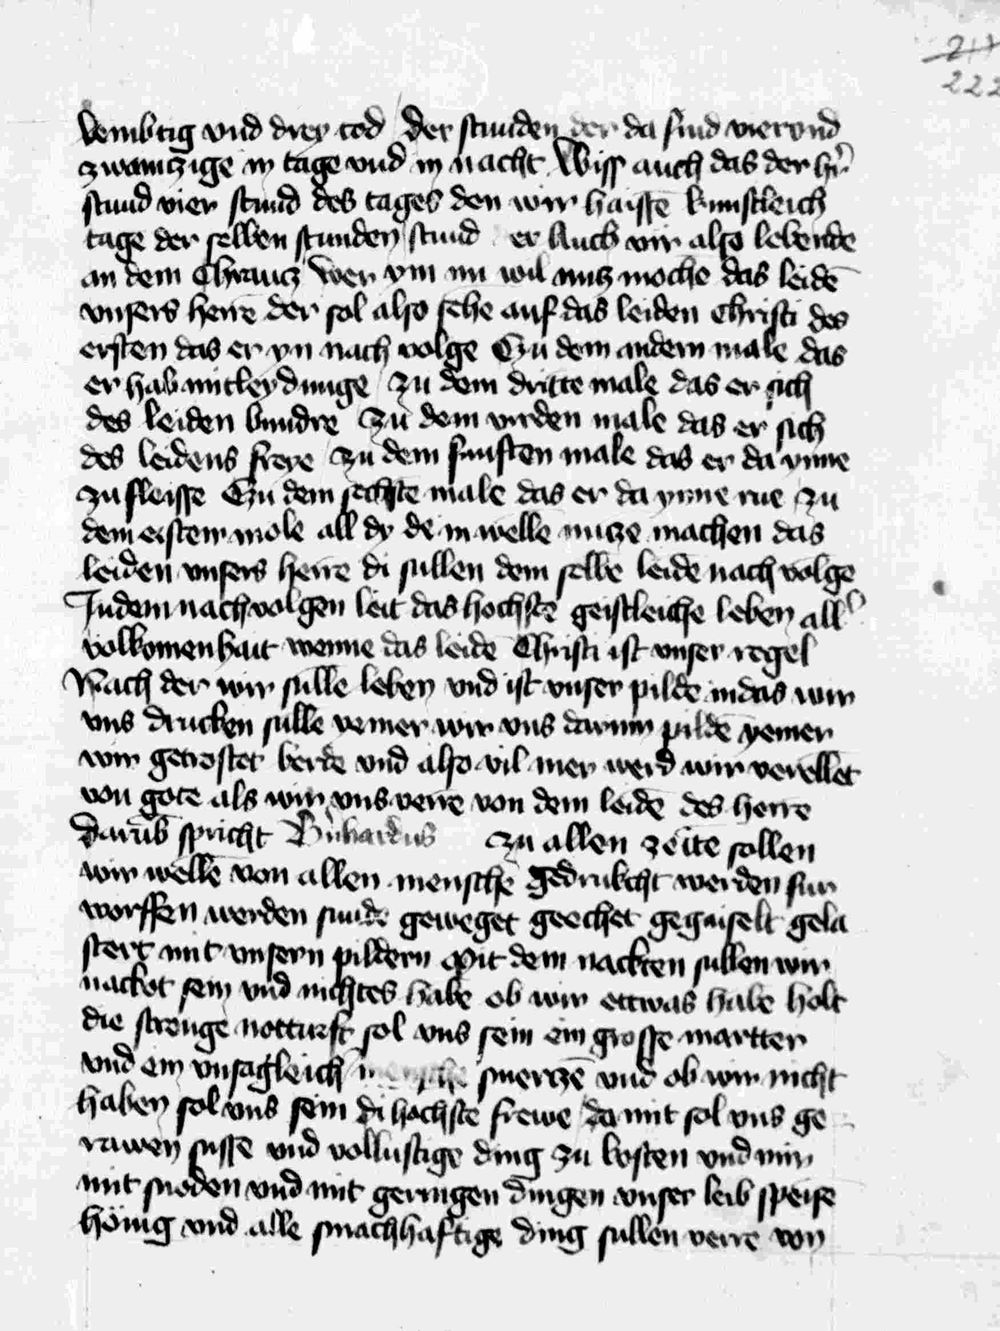 217
222
vembtig vnd drey tod Der stunden der da sind viervnd
zwainzige in tage vnd in nacht Wiss auch das der hr̄
stund vier stund des tages den wir haissē kunstleich
tage der selben stunden stund er Auch wir also lebende
an dem Chrawcz Wer ym nu wil nucz mochē das leidē
vnsers herrē der sol also sehē auf das leiden Christi des
ersten das er yn nach volge Czu dem andern male das
er hab mitleydunge Zu dem dritte male das er sich
des leiden bundre Zu dem virden male das er sich
des leidens frewe Zu dem funften male das er da ynne
zu fleisse Czu dem sechste male das er da ynne rue Zu
dem erstem mole all dy de in wellē nucze machen das
leiden vnsers herrē di sullen dem selbē leidē nach volgē
Indem nachvolgen leit das hochste geistleiche leben all
volkomenhait wenne das leidē Christi ist vnser regel
Nach der wir sullē leben vnd ist vnser pilde indas wir
vns drucken sullē yemer wir vns darinn pildē yemer
wir getrostet werdē vnd also vil mer werd wir verellet
von gote als wir vns verrē von dem leidē des herrē
darūb spricht Bnhardus zu allen zeitē sollen
wir wellē von allen menschē gedrukcht werden fur
worffen werden sunde geweget geechet gegaiselt gela
stert mit vnsern pildern Mit dem nackten sullen wir
nackot sein vnd nichtes habē ob wir ettwas habē holt
die strenge notturft sol vns sein ein grosse martter
vnd ein vnsagleich smerczē vnd ob wir nicht
haben sol vns sein di hochste frewe da mit sol vns ge
rawen susse vnd vollustige ding zu kosten vnd mir
mit snoden vnd mit geringen dingen vnser leib speise
Hönig vnd alle smachhaftige ding sullen verre von